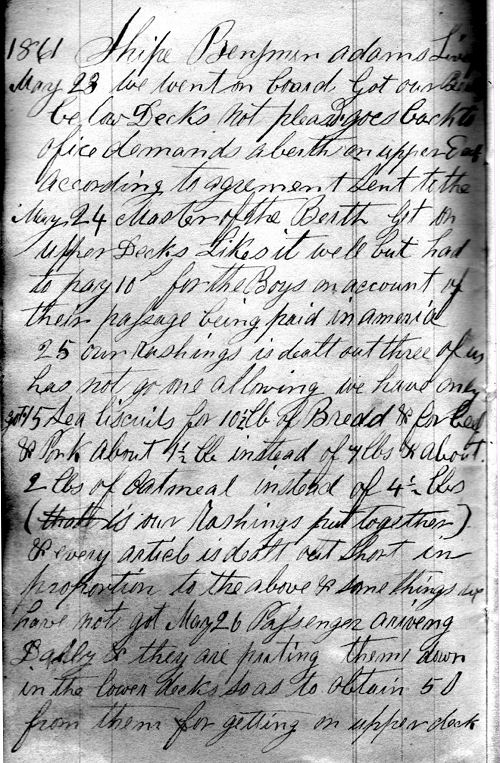 1861 Shipe Benjmin adams Live
May 23 We went on board Got our
below Decks Not pleas goes back to
ofice demands a berth on upper
According to agrement Sent to the
May 24 Master of the Berth Get on
upper Decks Likes it well but had
to pay 10 for the Boys on account of
their passage being paid in america
25 our Rashings is dealt out three of us
has not go one allowing we have only
got 15 Sea biscuits for 10½ lb of Bredd & for beef
& Pork About 1½ lb instead of 7 lbs & about
2 lbs of Oatmeal instead of 4½ lbs
(that is our Rashings put together)
& every article is dealt out Short in
proportion to the above & some things we
have not got May 26 Passenger ariveng
Dailly & they are puting them down
in the lower decks so as to obtain 5
from them for getting on upper deck